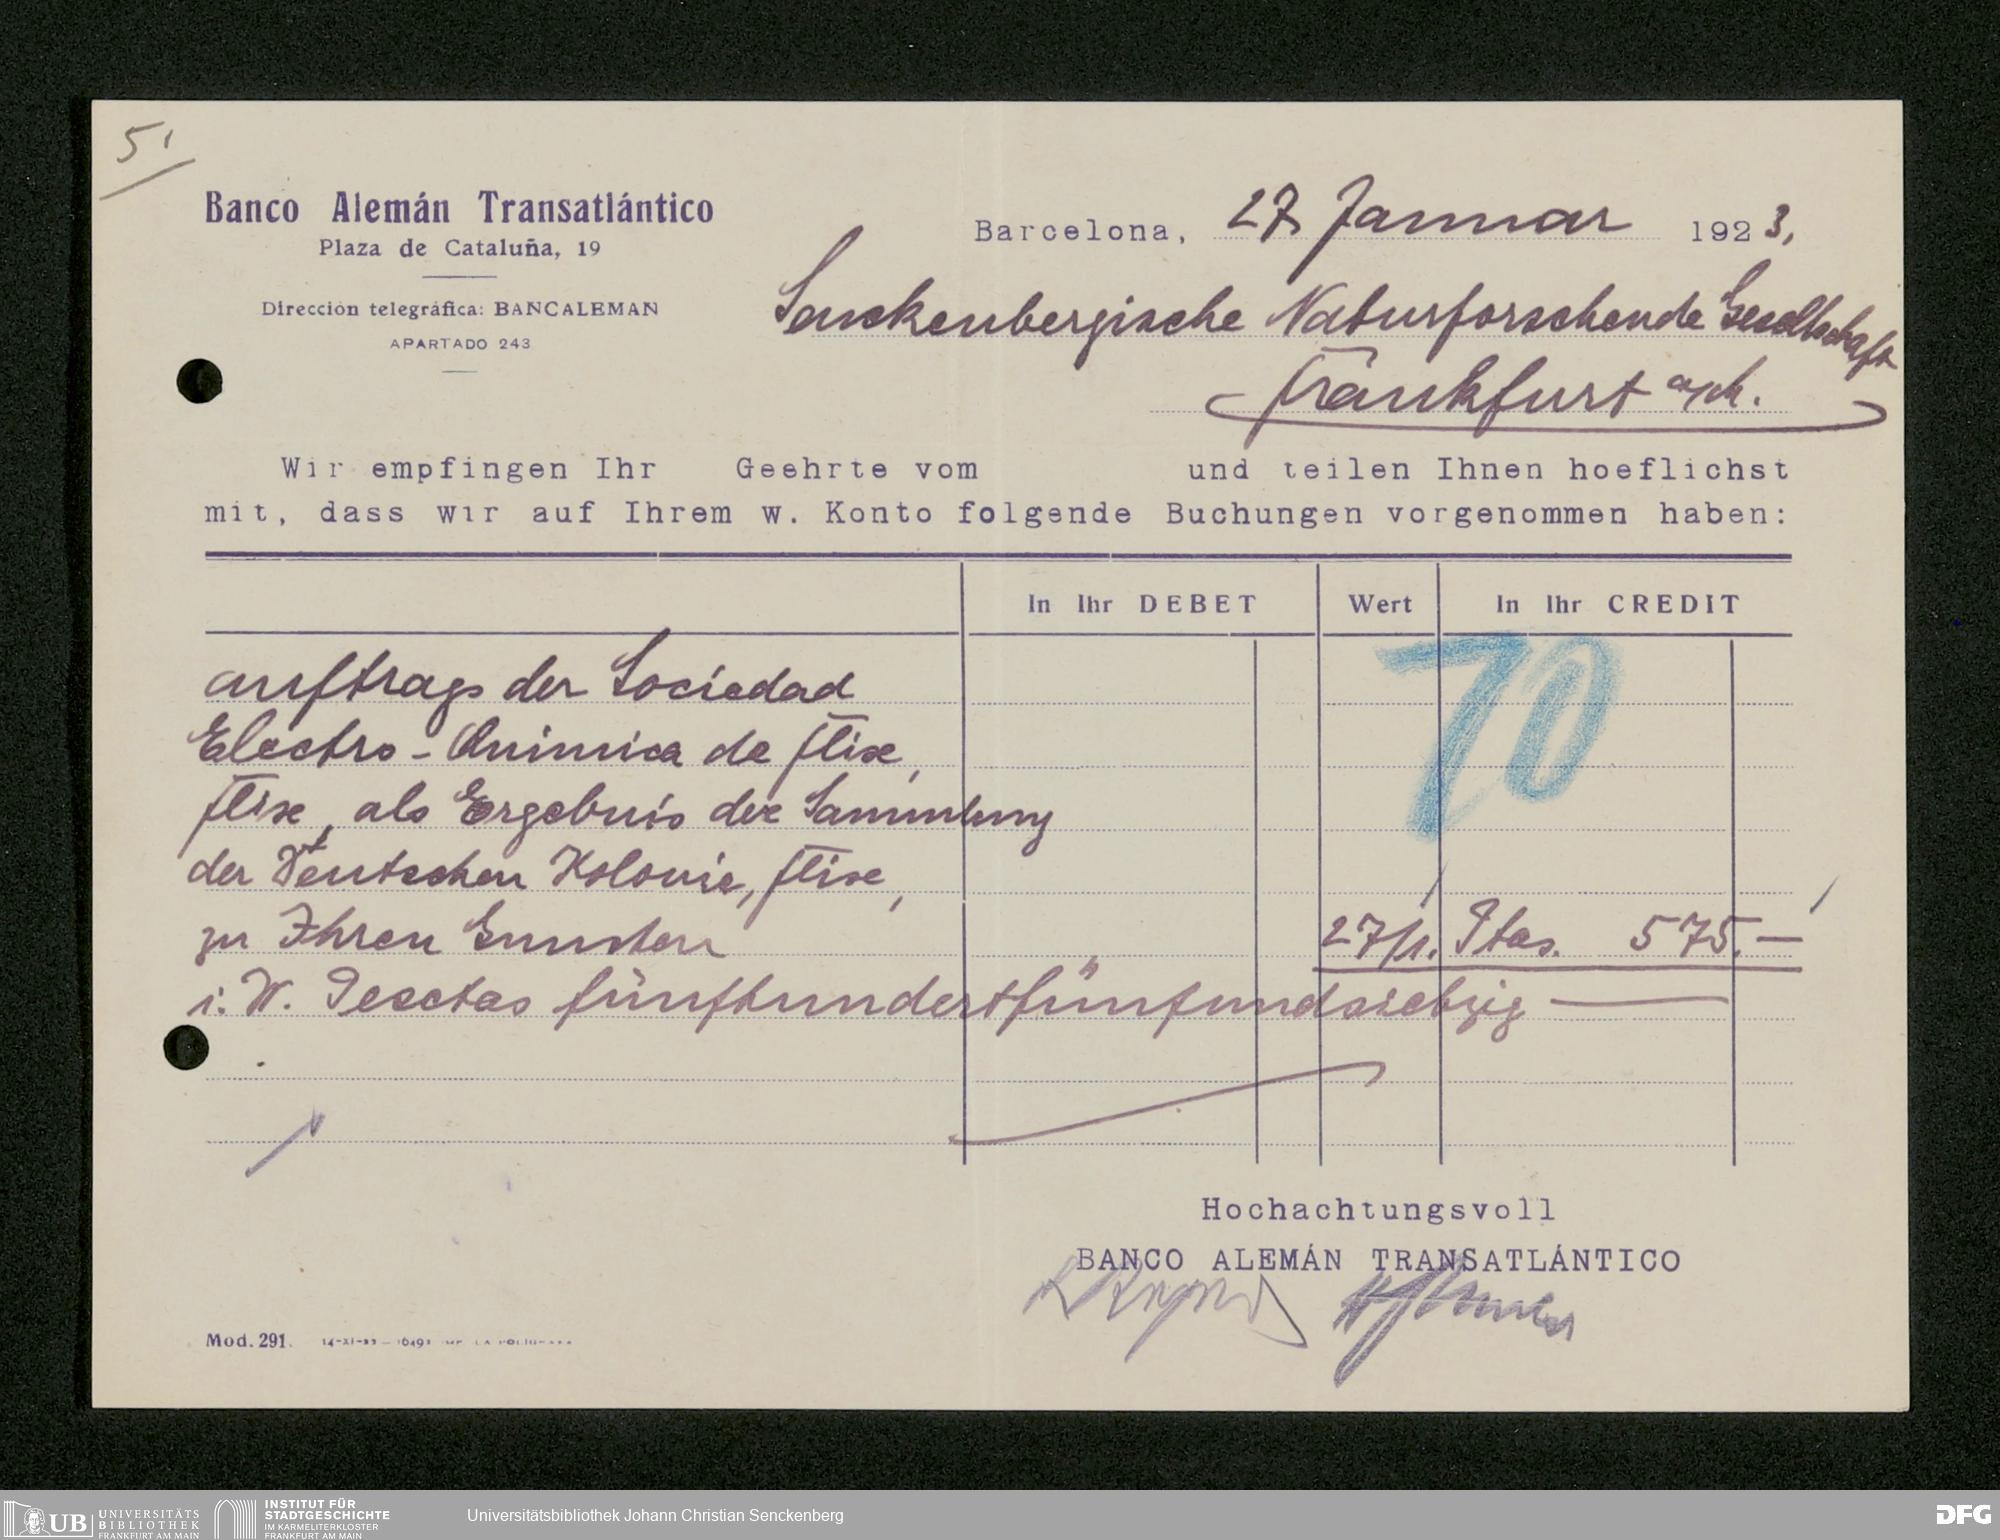 51
Banco Alemán Transatlántico
Plaza de Cataluña, 19
Dirección telegráfica: BANCALEMAN
APARTADO 243
Barcelona, 27. Januar 1923.
Senckenbergische Naturforschende Gesellschaft
Frankfurt a/M.
Wir empfingen Ihr Geehrte vom und teilen Ihnen hoeflichst
mit, dass wir auf Ihrem w. Konto folgende Buchungen vorgenommen haben:
In Ihr DEBET Wert In Ihr CREDIT
70
auftrags der Sociedad
Electro-Quimica de Flix,
Flix, als Ergebnis der Sammlung
der Deutschen Kolonie, Flix,
zu Ihren Gunsten 27/1. Ptas. 575.—
i. W. Pesetas fünfhundertfünfundsiebzig
Hochachtungsvoll
BANCO ALEMÁN TRANSATLÁNTICO
Mod. 291. 14-XI-22
UB UNIVERSITÄTS
BIBLIOTHEK
FRANKFURT AM MAIN
INSTITUT FÜR
STADTGESCHICHTE
IM KARMELITERKLOSTER
FRANKFURT AM MAIN
Universitätsbibliothek Johann Christian Senckenberg
DFG